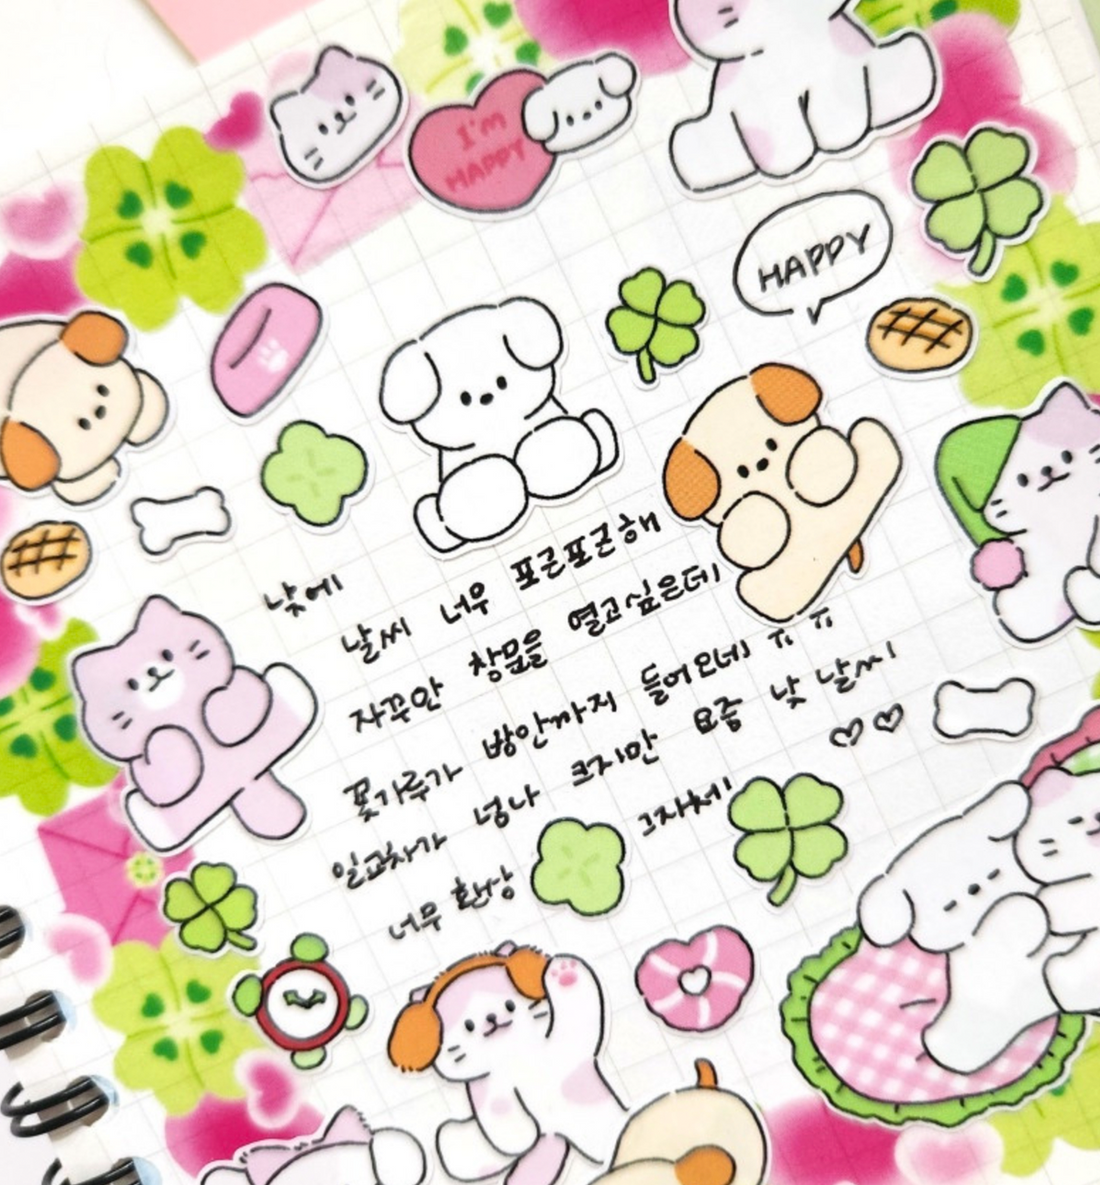 I'm
HAPPY
HAPPY
낮에
날씨 너무 포근포근해
자꾸만 창문을 열고싶은데
꽃가루가 방안까지 들어오네 ㅠㅠ
일교차가 넘나 크지만 요즘 낮 날씨
너무 환상 그자체 ♡♡